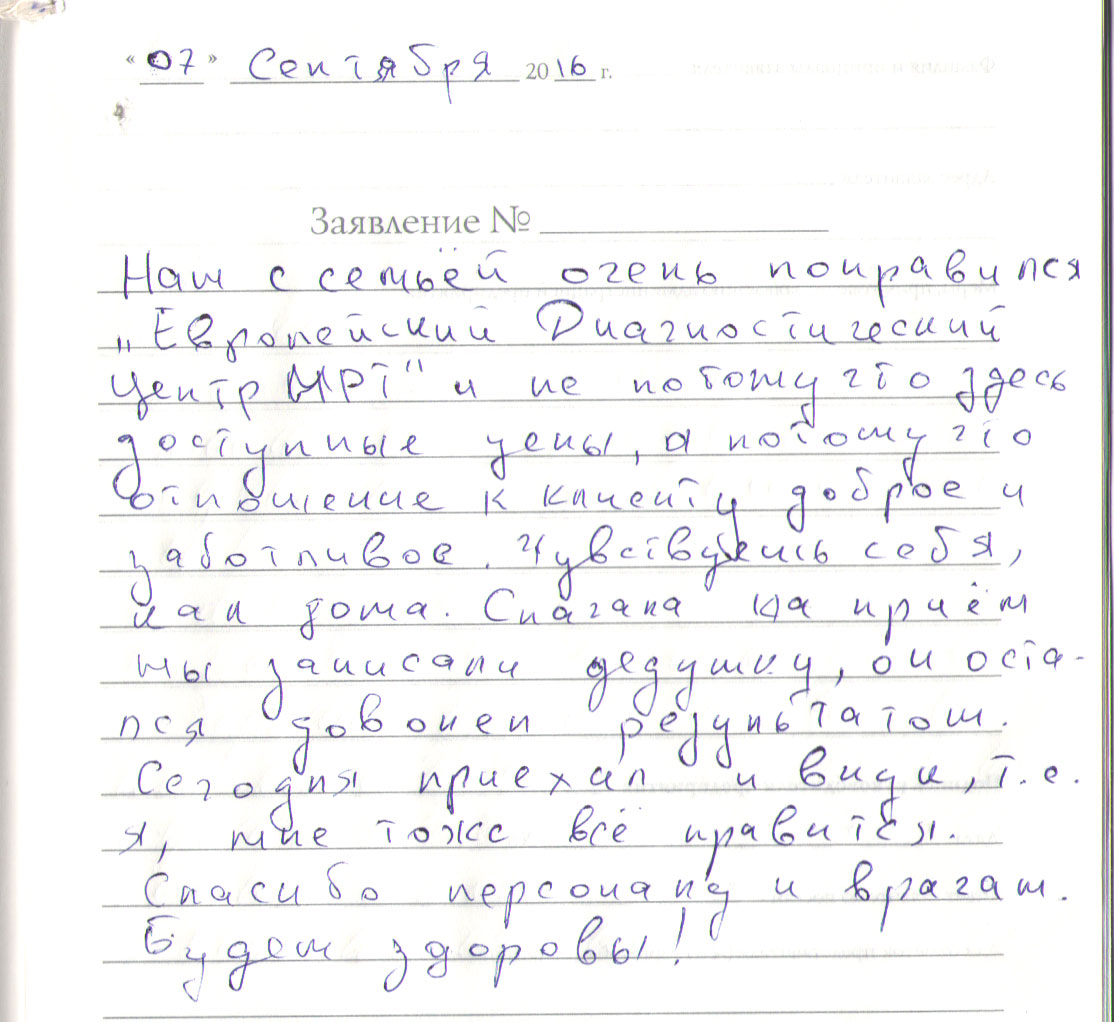 « 07 » Сентября 2016 г.
Заявление № 
Нам с семьёй очень понравился
„Европейский Диагностический
Центр МРТ" и не потому что здесь
доступные цены, а потому что
отношение к клиенту доброе и
заботливое. Чувствуешь себя,
как дома. Сначала на приём
мы записали дедушку, он оста-
лся доволен результатом.
Сегодня приехал и внук, т.е.
я, мне тоже всё нравится.
Спасибо персоналу и врачам.
Будем здоровы!